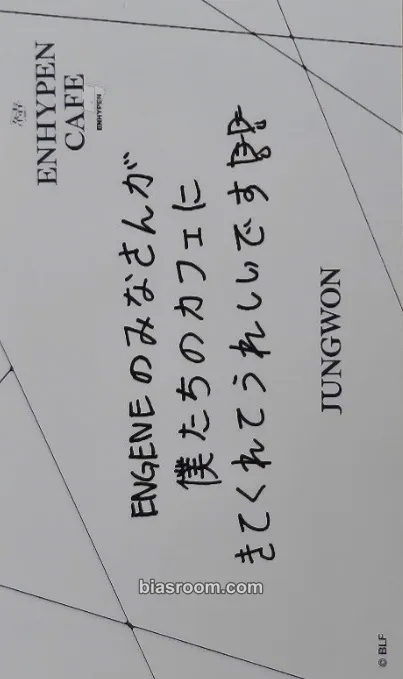 ENHYPEN
CAFE
ENHYPEN
ENGENEのみなさんが
僕たちのカフェに
きてくれてうれしいです
JUNGWON
biasroom.com
© BLF